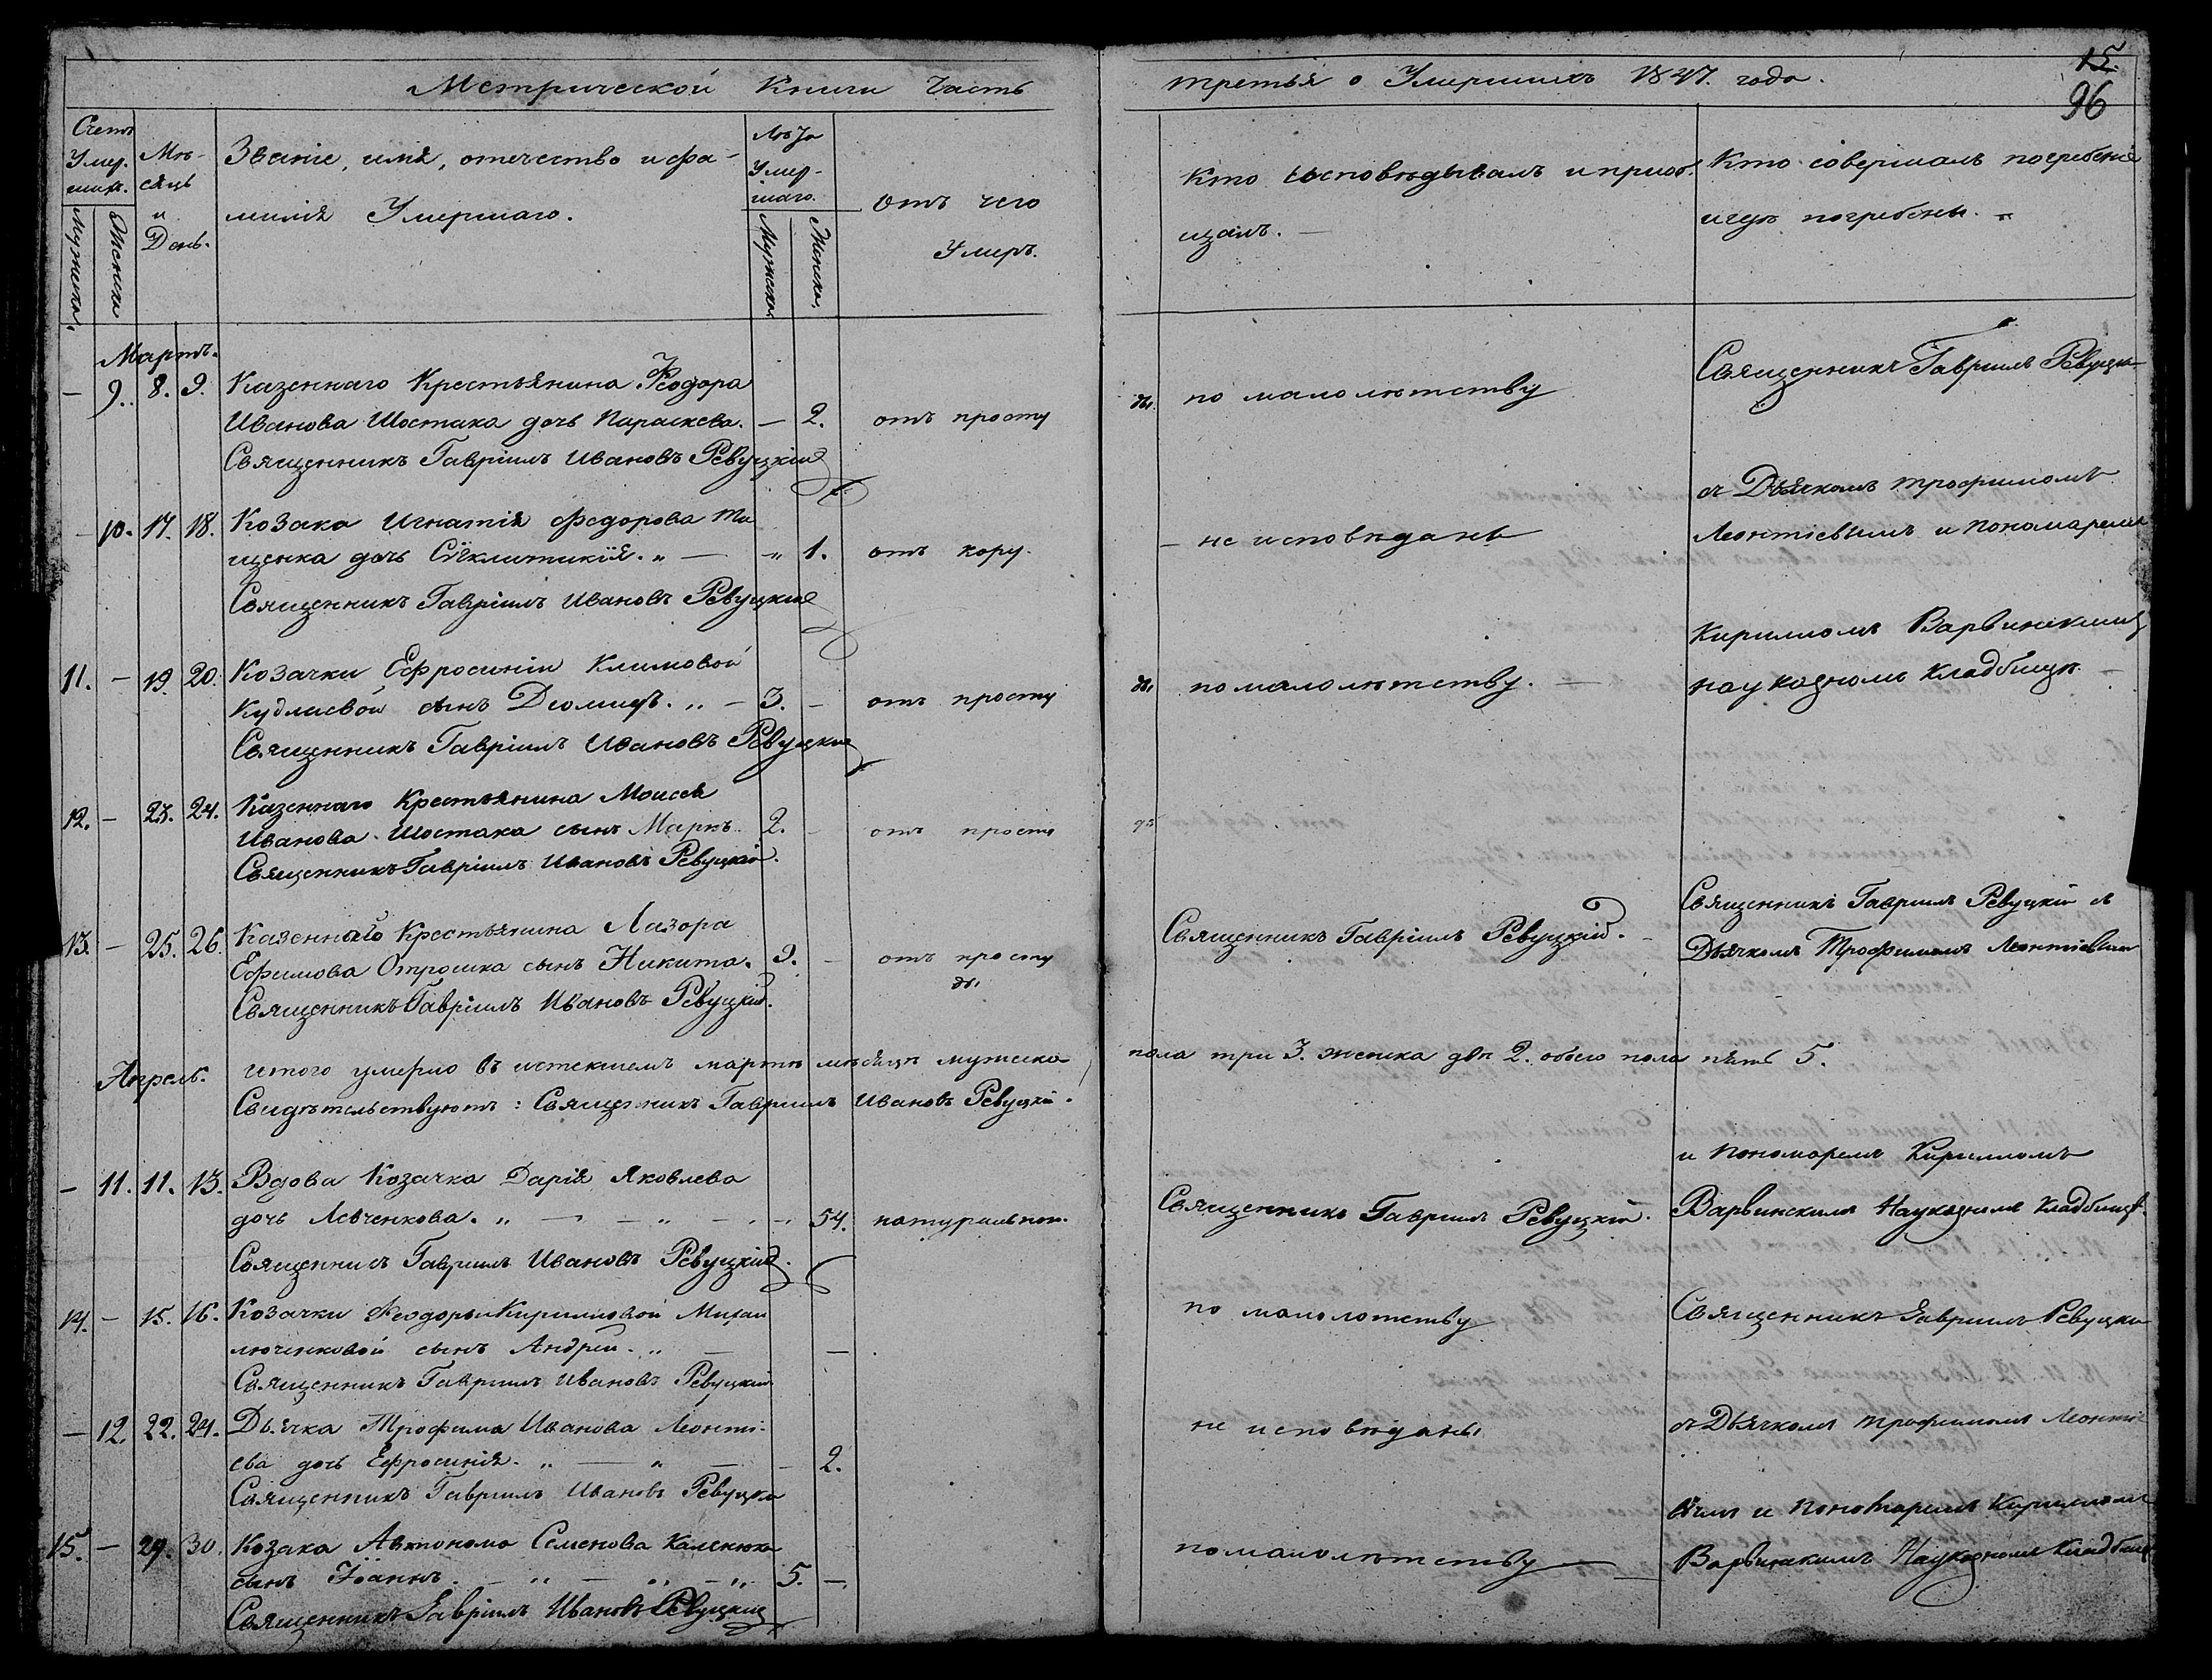 Метрической Книги Часть
третья о Умершихъ 1847. года.
15.
96
Счетъ Умер-шихъ.
Мѣ-сяцъ и День.
Званіе, имя, отечество и фа-
милія Умершаго.
Лѣта Умер-шаго.
Отъ чего
Умеръ.
Кто исповѣдывалъ и приоб.
щалъ. —
Кто совершалъ погребенія
и гдѣ погребены.
Мужеска.
Женска
Мужска.
Женска.
Мартъ.
— 9. 8. 9. Казеннаго Крестьянина Ѳеодора
Иванова Шостака дочь Параскева. — 2. отъ просту
ды. по малолѣтству
Священникъ Гавріилъ Ревуцкі
Священникъ Гавріилъ Ивановъ Ревуцкій
съ Дьячкомъ Трофимомъ
— 10. 17. 18. Козака Игнатія Федорова
щенка дочь Сѵклитикія. „ — „ 1. отъ кору.
— не исповѣданъ
Леонтіевымъ и Пономаремъ
Священникъ Гавріилъ Ивановъ Ревуцкій
Кирилломъ Варвинскимъ
11. — 19. 20. Козачки Ефросиніи Климовой
Кудлаевой сынъ Діомидъ. „ — 3. — отъ просту
ды. по малолѣтству. —
на укодномъ Кладбищѣ —
Священникъ Гавріилъ Ивановъ Ревуцкій
12. — 23. 24. Казеннаго Крестьянина Моисея
Иванова Шостака сынъ Маркъ. 2. — отъ просту
Священникъ Гавріилъ Ивановъ Ревуцкій.
13. — 25. 26. Казеннаго Крестьянина Лазора
Ефимова Отрошка сынъ Никита. 3. — отъ просту
ды.
Священникъ Гавріилъ Ревуцкій. —
Священникъ Гавріилъ Ревуцкій съ
Дьячкомъ Трофимомъ Леонтіевым
Священникъ Гавріилъ Ивановъ Ревуцкій.
Апрель.
Итого умерло въ истекшемъ мартѣ мѣсяцѣ мужеска
пола три 3. женска двѣ 2. обоего пола пять 5.
Свидѣтельствуютъ: Священникъ Гавріилъ Ивановъ Ревуцкій.
и Пономаремъ Кирилломъ
— 11. 11. 13. Вдова Козачка Дарія Яковлева
дочь Левченкова. „ — — „ — — 54. натуральною.
Священникъ Гавріилъ Ревуцкій.
Варвинскимъ На укодномъ Кладбищѣ.
Священникъ Гавріилъ Ивановъ Ревуцкій.
14. — 15. 16. Козачки Ѳеодоры Кирилловой Михай
люченковой сынъ Андрей. „ — —
по малолѣтству
Священникъ Гавріилъ Ревуцкій
Священникъ Гавріилъ Ивановъ Ревуцкій
— 12. 22. 24. Дьячка Трофима Иванова Леонті-
ева дочь Ефросинія. „ — „ — — 2.
не исповѣданы
съ Дьячкомъ Трофимомъ Леонті
Священникъ Гавріилъ Ивановъ Ревуцкі
евымъ и Пономаремъ Кирилломъ
15. — 29. 30. Козака Автонома Семенова Каленюка
сынъ Іоаннъ. — „ — „ — „ 5. —.
по малолѣтству —
Варвинскимъ На укодномъ Кладбищѣ
Священникъ Гавріилъ Ивановъ Ревуцкій